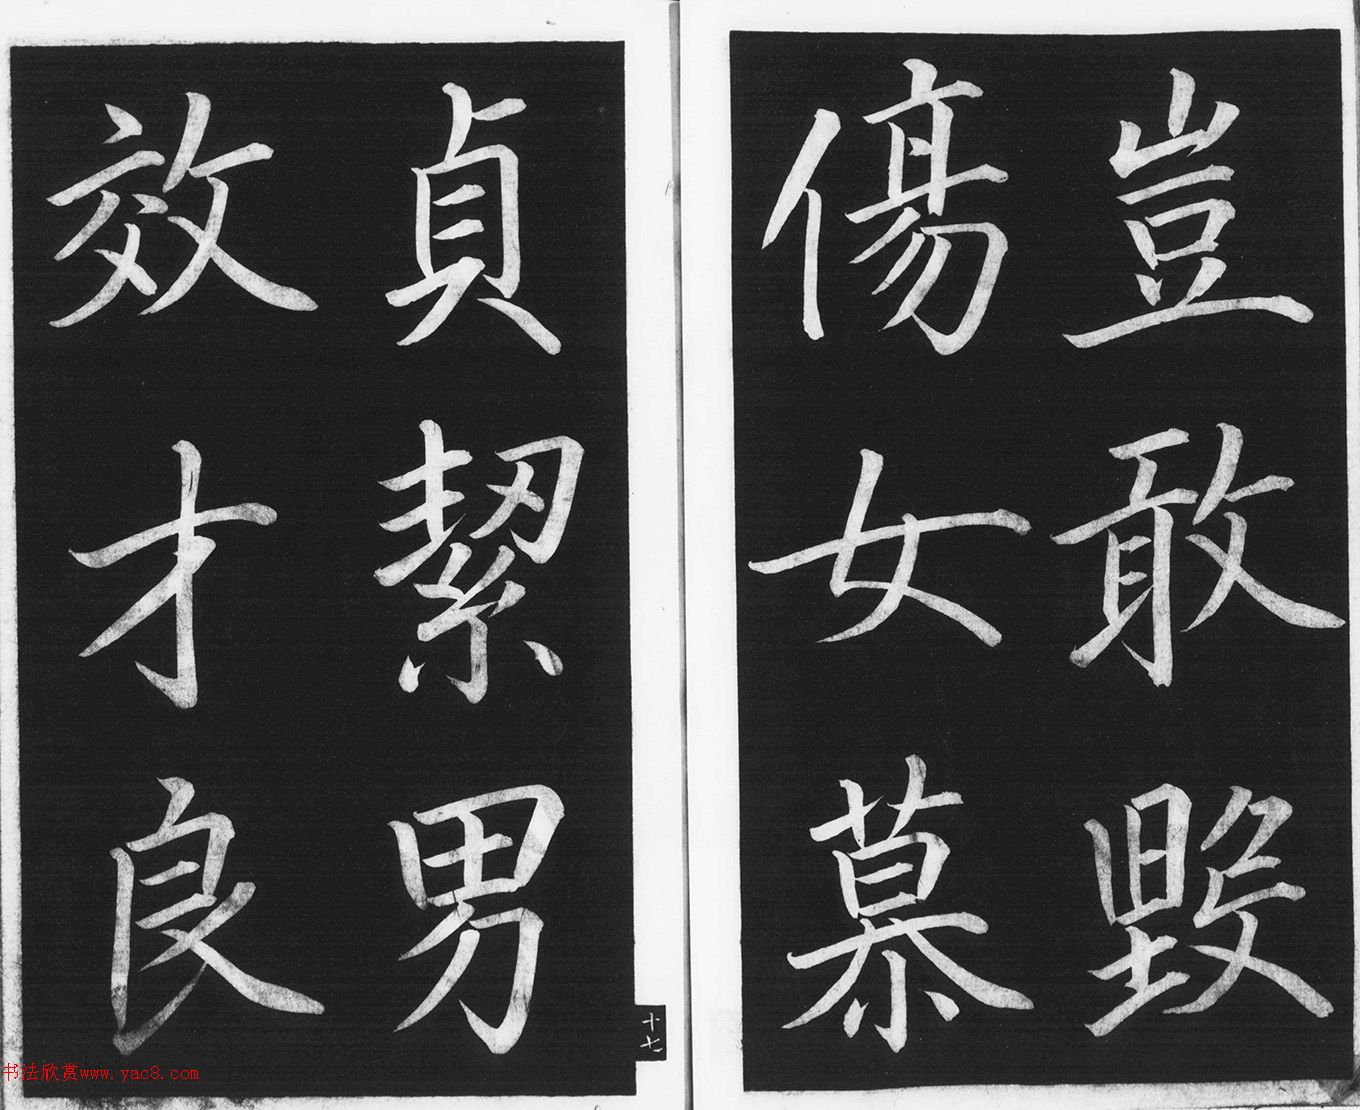 豈敢毀
傷女慕
貞絜男
效才良
十七
书法欣赏www.yac8.com